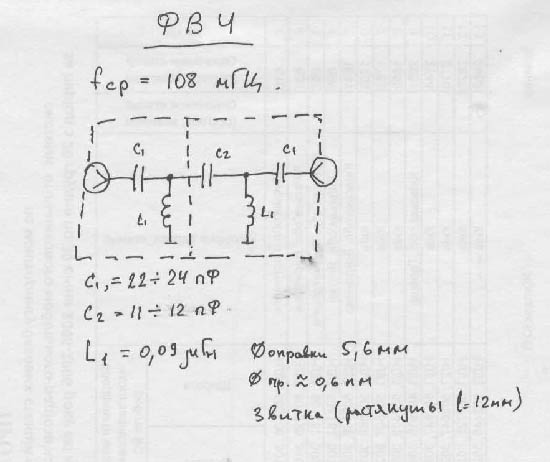 ФВЧ
fср = 108 мГц.
C1 C2 C1
L1 L1
C1 = 22÷24 пФ
C2 = 11÷12 пФ
L1 = 0,09 μГн Ø оправки 5,6 мм
Ø пр. ≈ 0,6 мм
3 витка (растянуты l=12мм)